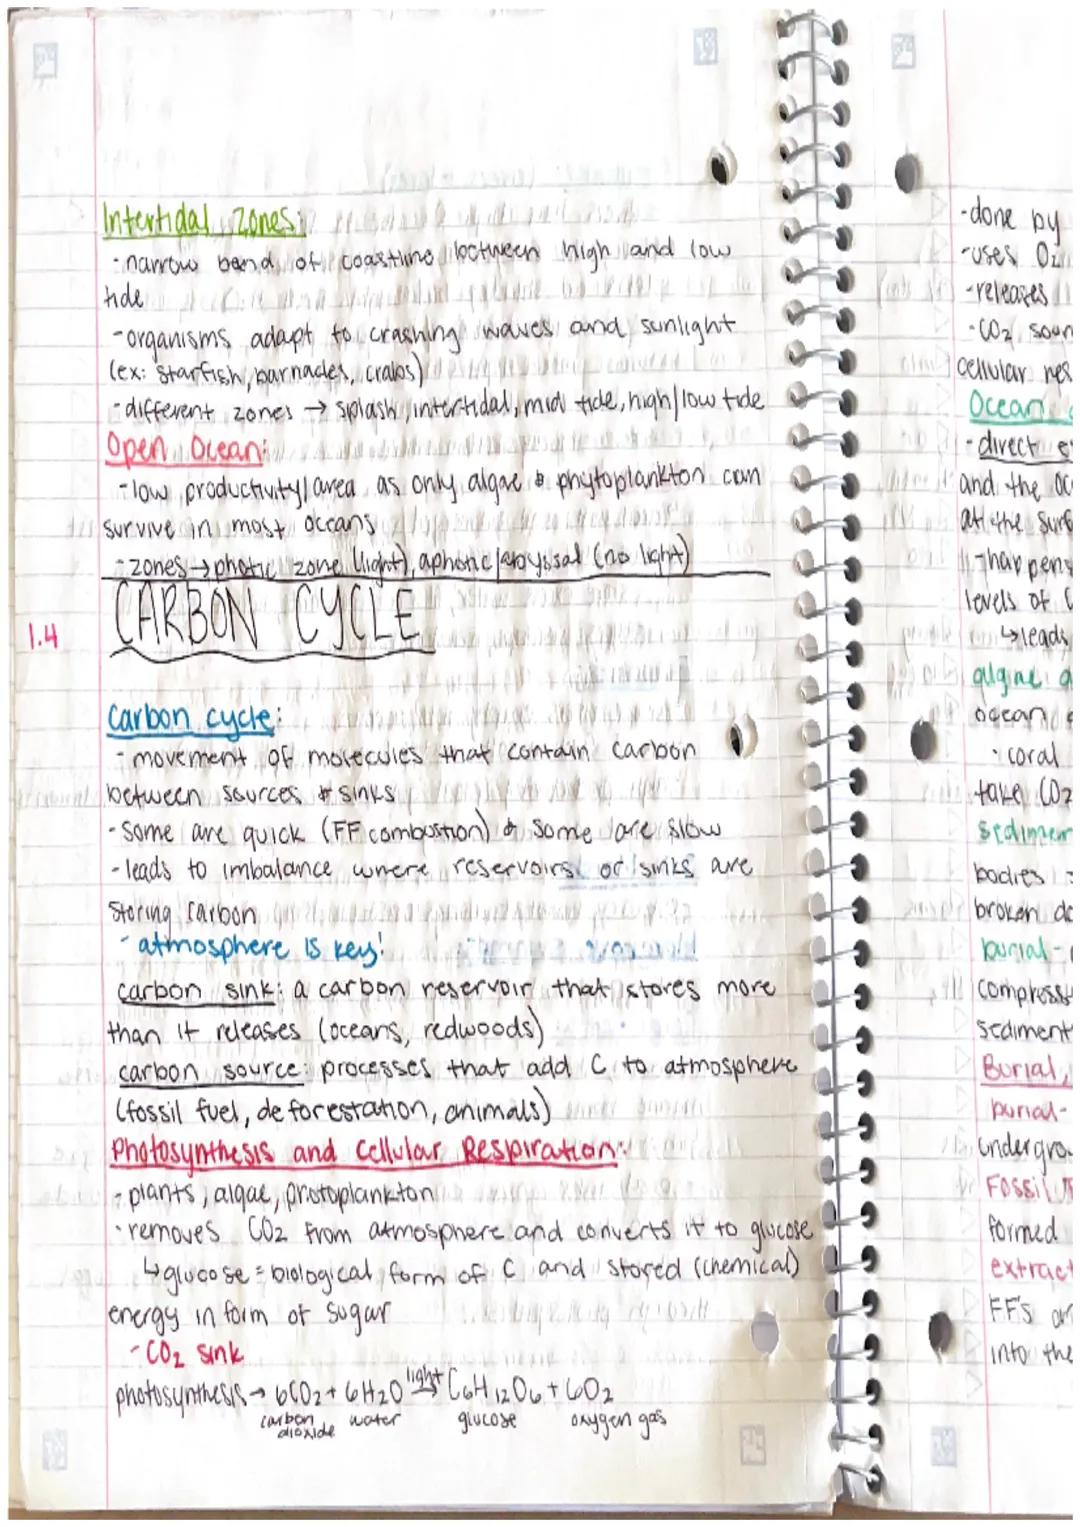 Intertidal Zones:
- narrow band of coastline between high and low
tide
- organisms adapt to crashing waves and sunlight
(ex: starfish, barnacles, crabs)
- different zones → splash, intertidal, mid tide, high/low tide
Open Ocean:
- low productivity/area as only algae & phytoplankton can
survive in most oceans
- zones → photic zone (light), aphotic/abyssal (no light)
1.4 CARBON CYCLE
Carbon cycle:
- movement of molecules that contain carbon
between sources & sinks
- some are quick (FF combustion) & some are slow
- leads to imbalance where reservoirs or sinks are
storing carbon
- atmosphere is key!
carbon sink: a carbon reservoir that stores more
than it releases (oceans, redwoods)
carbon source: processes that add C to atmosphere
(fossil fuel, deforestation, animals)
Photosynthesis and Cellular Respiration:
- plants, algae, protoplankton
- removes CO2 from atmosphere and converts it to glucose
↳ glucose = biological form of C and stored (chemical)
energy in form of sugar
- CO2 sink
photosynthesis → 6CO2 + 6H2O light→ C6H12O6 + 6O2
carbon dioxide water glucose oxygen gas
- done by
- uses O2
- releases
- CO2
cellular
Ocean
- direct
and the
at the
- happens
levels of
↳ leads
algae
ocean
- coral
take CO2
bodies
broken
burial -
Burial,
burial -
Fossil
formed
extract
FF's
into the